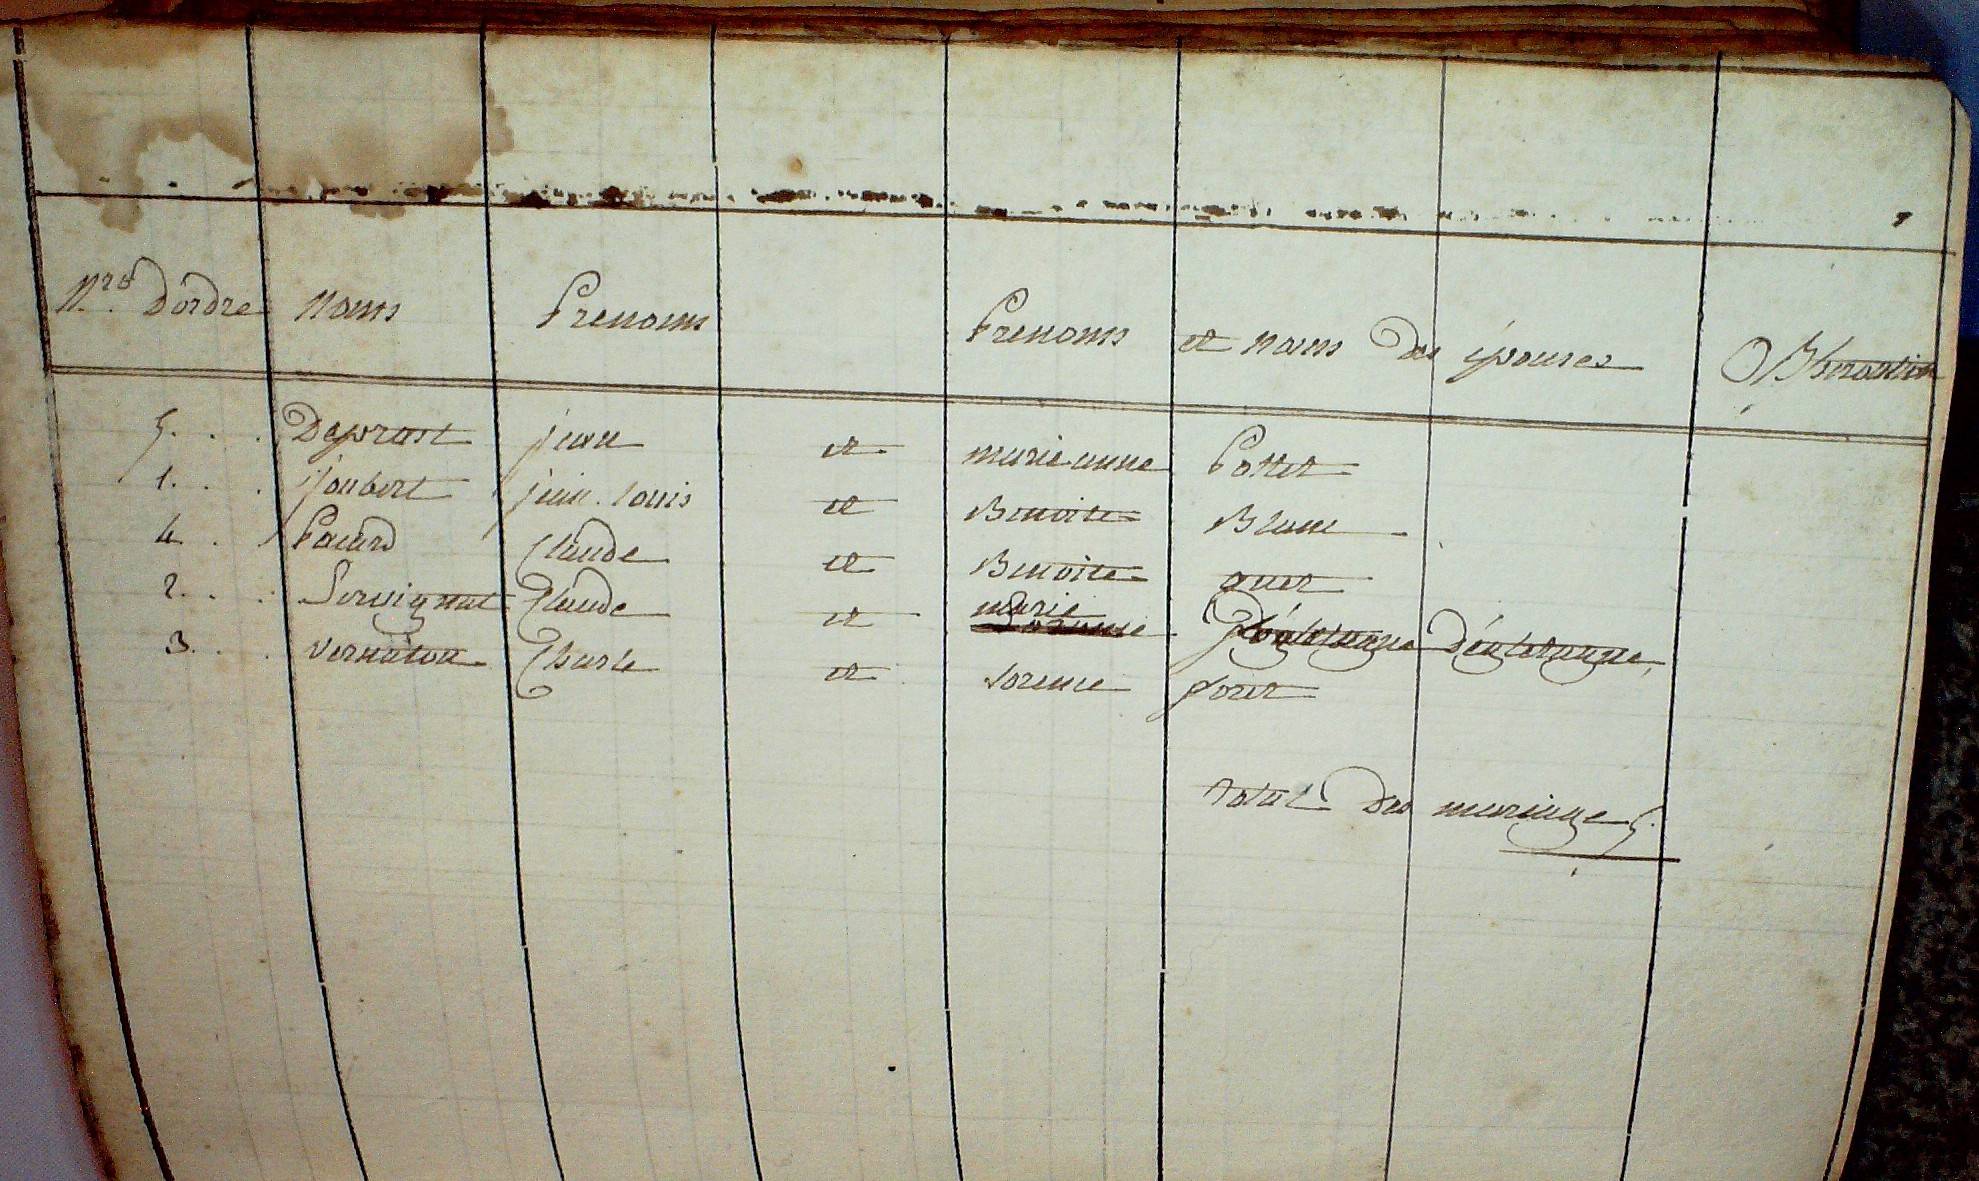 Nros D'ordre Noms Prenoms Prenoms et noms des épouses Observation
5. . . Deprast jean et marie anne Pottet
1. . . Joubert jean. louis et Benoite Blanc
4. . . Pacard Claude et Benoite guet
2. . . Servignat Claude et marie D'éuletangue
3. . . Vernaton Charle et Lorence foret
Total des mariage 5.